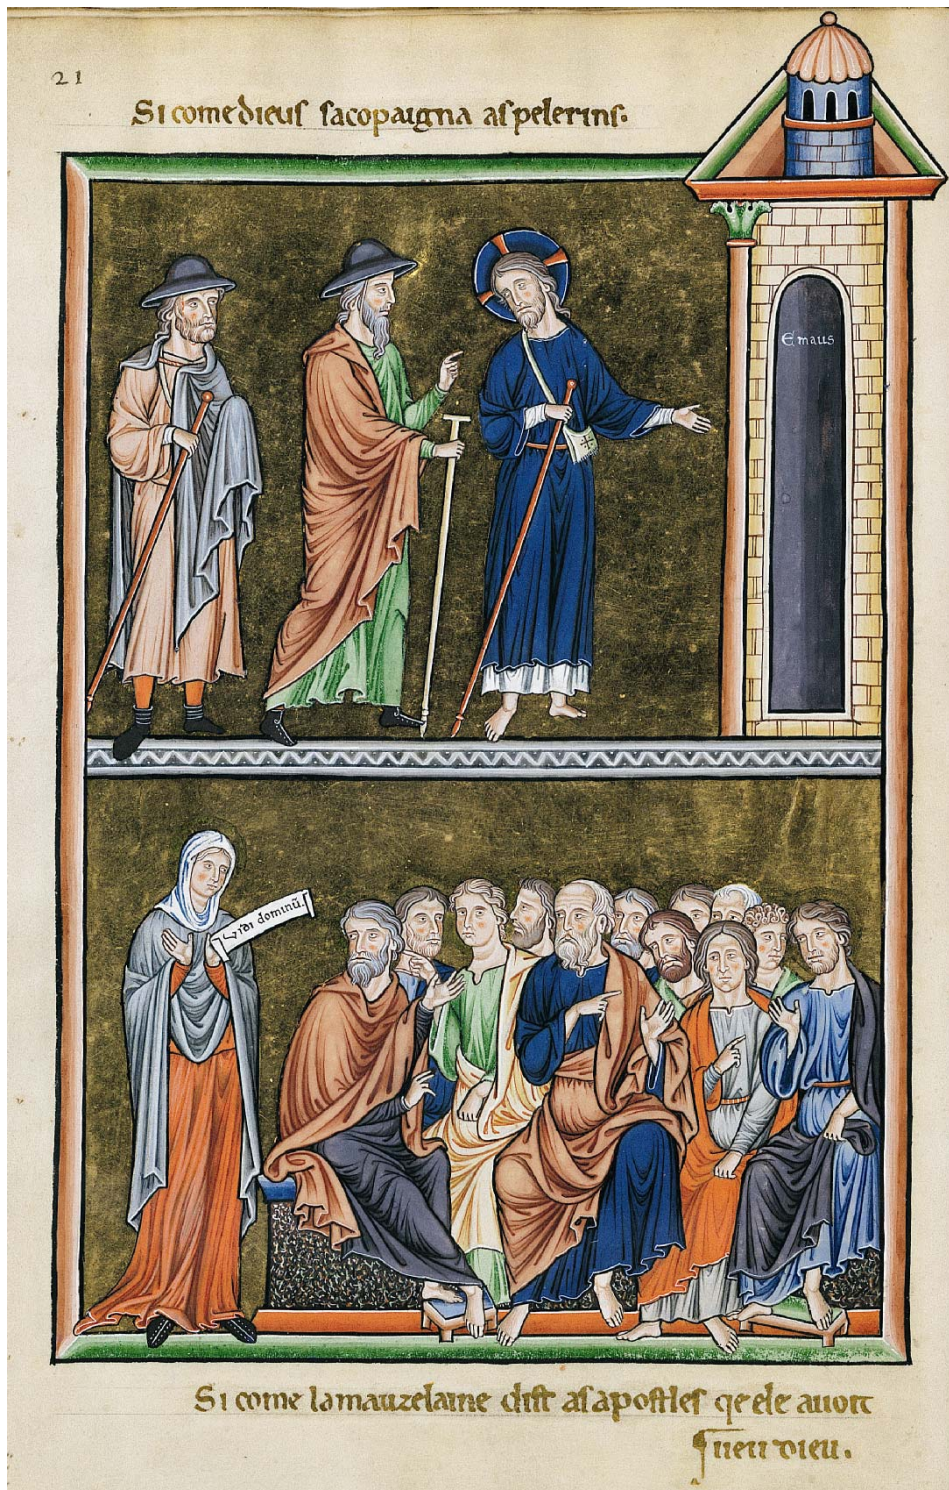 21
Si come dieus sacopaigna as pelerins.
Emaus
Vidi dominũ.
Si come la mauzelaine dist as apostles qe ele auoit
ueu dieu.